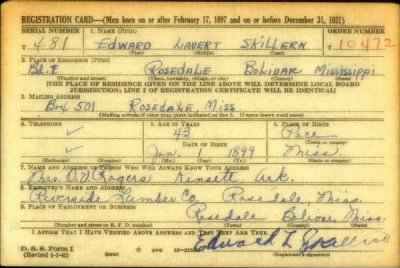 REGISTRATION CARD—(Men born on or after February 17, 1897 and on or before December 31, 1921)
SERIAL NUMBER 1. NAME (Print) ORDER NUMBER
T 481 EDWARD LAVERT SKILLERN T 10472
(First) (Middle) (Last)
2. PLACE OF RESIDENCE (Print)
ROSEDALE BOLIVAR MISSISSIPPI
(Number and street) (Town, township, village, or city) (County) (State)
[THE PLACE OF RESIDENCE GIVEN ON THE LINE ABOVE WILL DETERMINE LOCAL BOARD
JURISDICTION; LINE 2 OF REGISTRATION CERTIFICATE WILL BE IDENTICAL]
3. MAILING ADDRESS
Box 501 Rosedale, Miss
(Mailing address if other than place indicated on line 2. If same insert word same)
4. TELEPHONE 5. AGE IN YEARS 6. PLACE OF BIRTH
✓ 43 Pace
DATE OF BIRTH (Town or county)
✓ Jan. 1 1899 Miss
(Exchange) (Number) (Mo.) (Day) (Yr.) (State or country)
7. NAME AND ADDRESS OF PERSON WHO WILL ALWAYS KNOW YOUR ADDRESS
Mrs. Rogers Kensett Ark.
8. EMPLOYER'S NAME AND ADDRESS
Riverside Lumber Co. Rosedale, Miss.
9. PLACE OF EMPLOYMENT OR BUSINESS
Rosedale Bolivar Miss.
(Number and street or R. F. D. number) (Town) (County) (State)
I AFFIRM THAT I HAVE VERIFIED ABOVE ANSWERS AND THAT THEY ARE TRUE.
D. S. S. Form 1
(Revised 1-1-42) Edward L Skillern